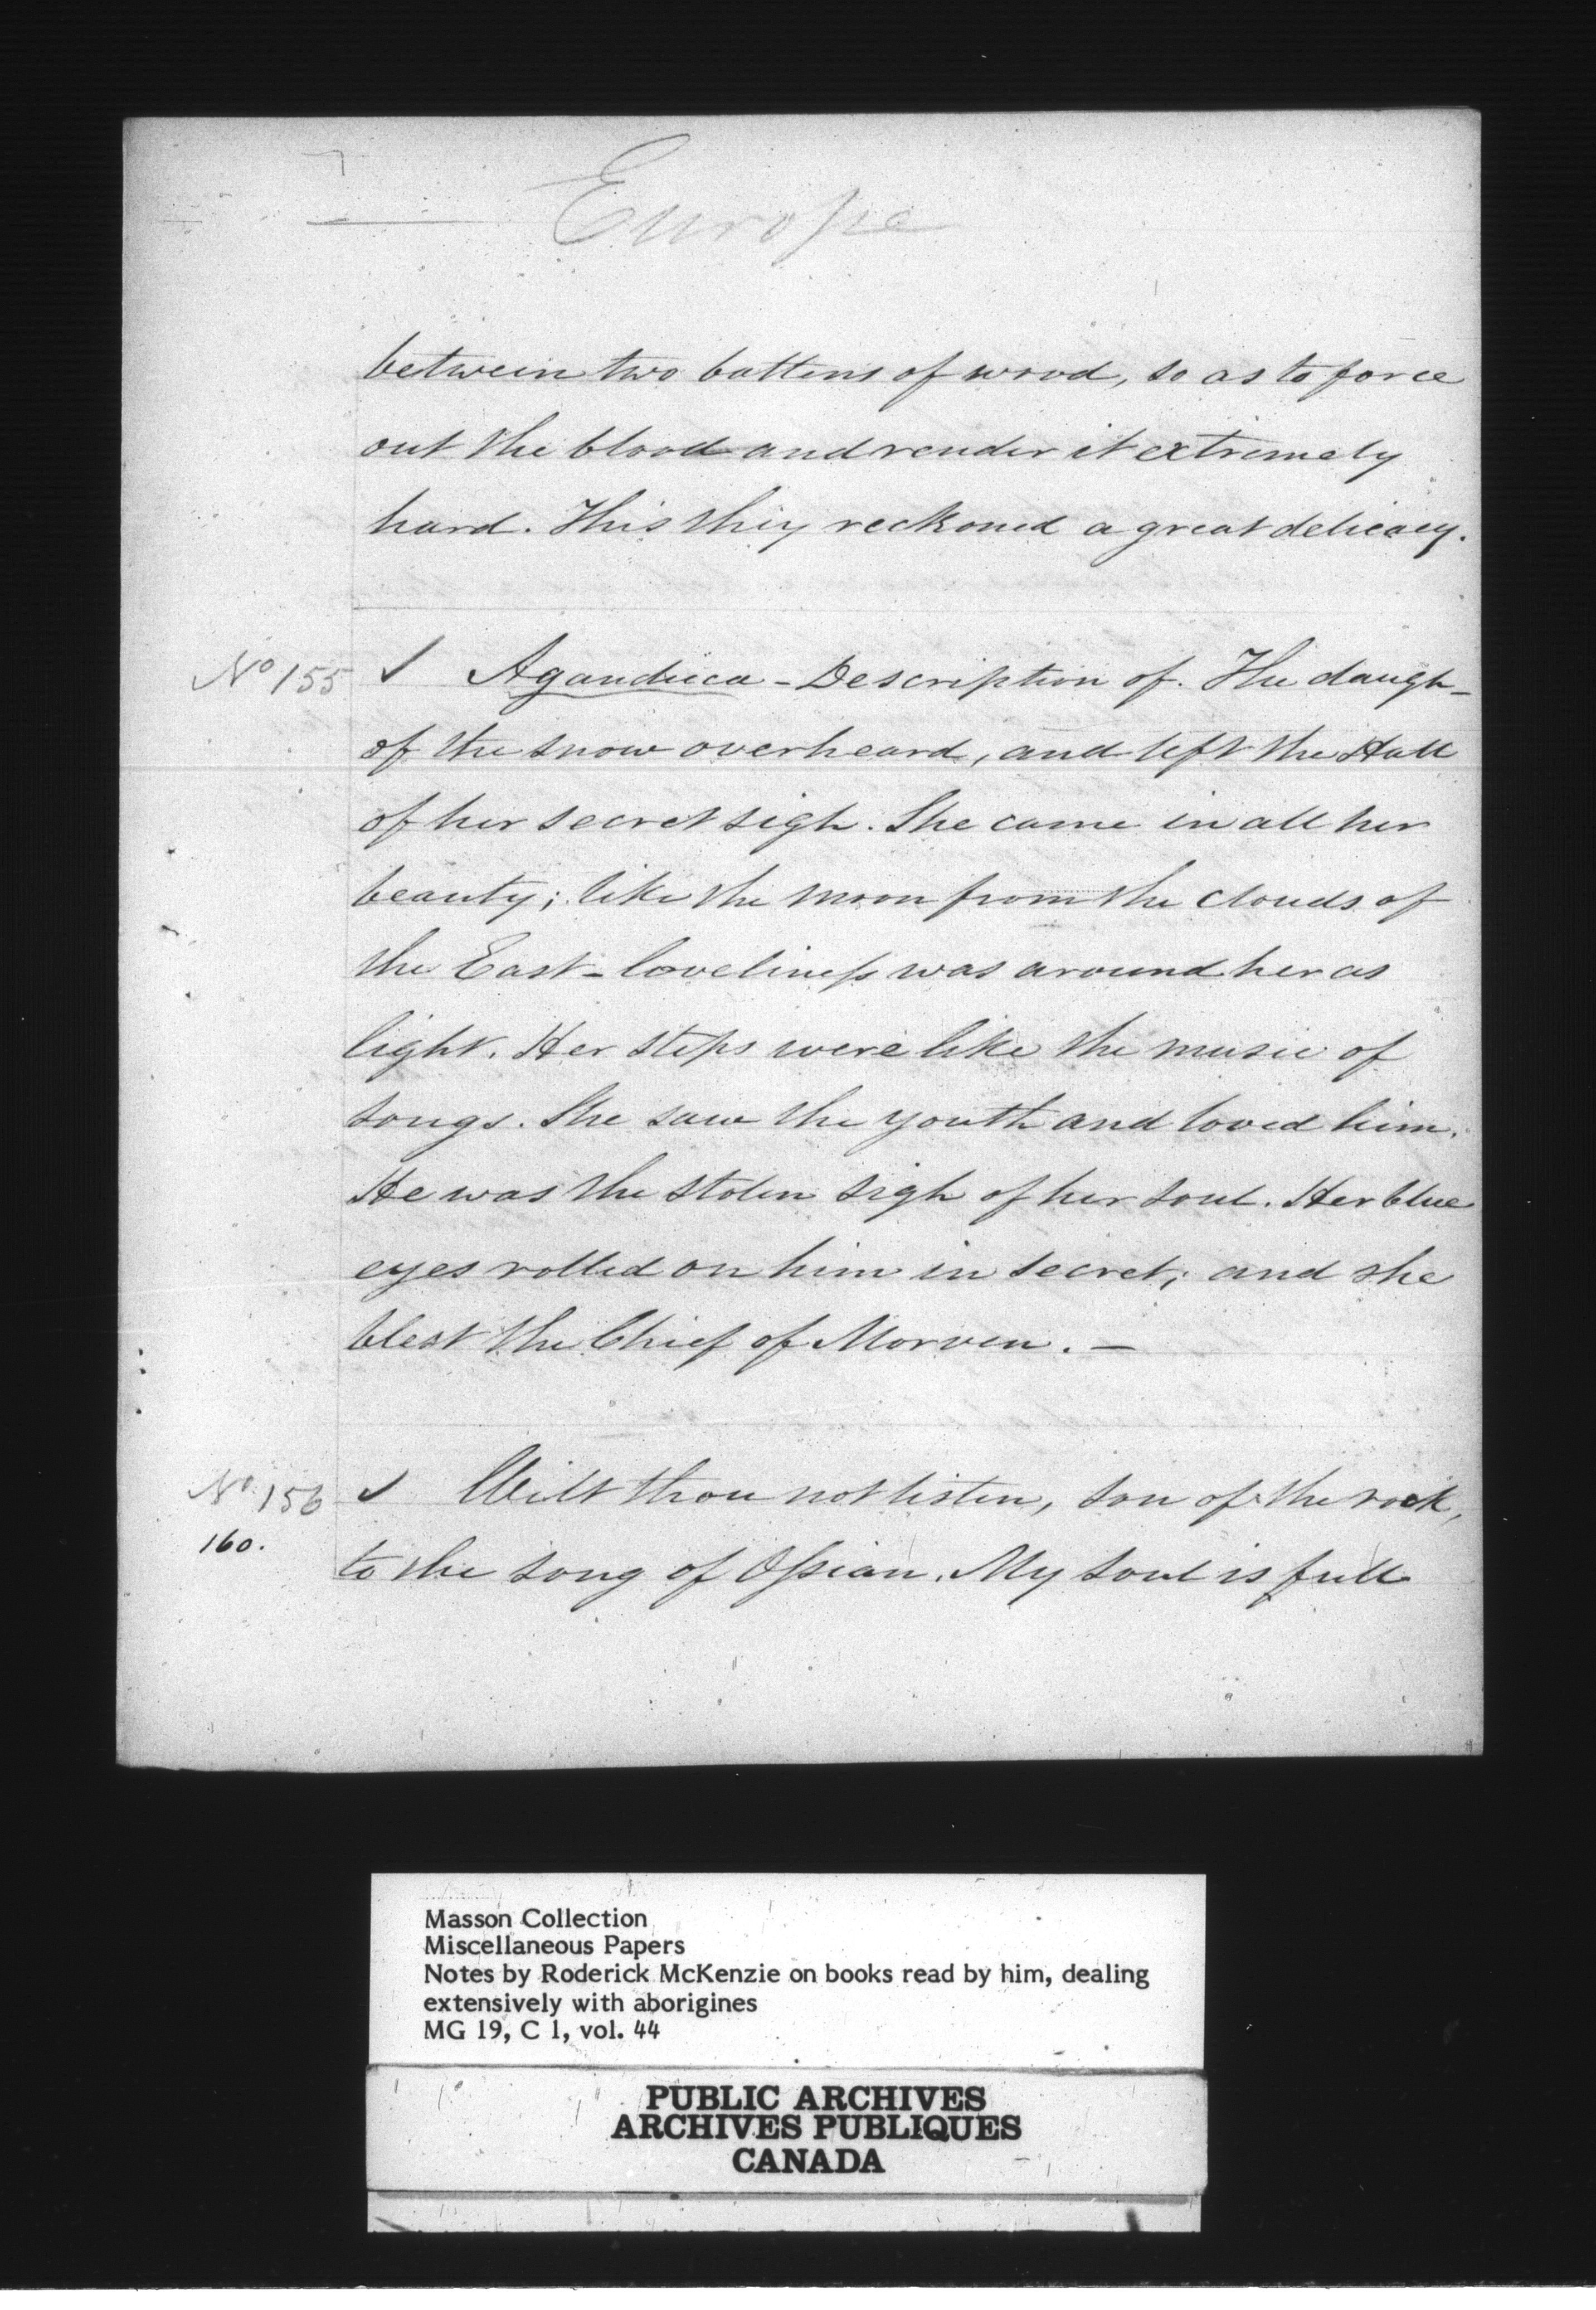 Europe
between two battens of wood, so as to force
out the blood and render it extremely
hard. This they reckoned a great delicacy.
No 155 ✓ Agandecca - Description of. The daugh-
of the snow overheard, and left the Hall
of her secret sigh. She came in all her
beauty; like the moon from the clouds of
the East - loveliness was around her as
light. Her steps were like the music of
songs. She saw the youth and loved him.
He was the stolen sigh of her soul. Her blue
eyes rolled on him in secret; and she
blest the Chief of Morven. —
No 156 ✓ Wilt thou not listen, son of the rock,
160.
to the song of Ossian. My soul is full
Masson Collection
Miscellaneous Papers
Notes by Roderick McKenzie on books read by him, dealing
extensively with aborigines
MG 19, C 1, vol. 44
PUBLIC ARCHIVES
ARCHIVES PUBLIQUES
CANADA